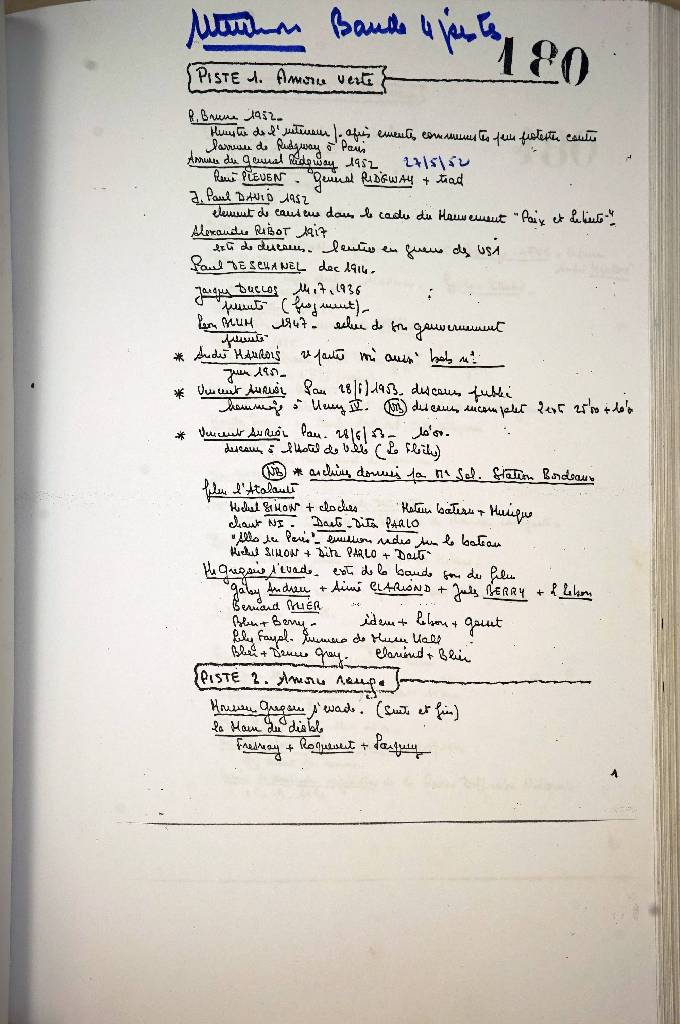 Attention Bande 4 pistes
180
PISTE 1. Amorce verte
P. Brune 1952_
Ministre de l'intérieur). après émeutes communistes pour protester contre
l'arrivée de Ridgway à Paris
Arrivée du General Ridgway 1952 27/5/52
René PLEVEN _ General RIDGWAY + trad
J. Paul DAVID 1952
element de causerie dans le cadre du Mouvement "Paix et Liberté"
Alexandre RIBOT 1917
ext de discours. l'entrée en guerre des USA
Paul DESCHANEL dec 1914.
Jacques DUCLOS 14.7.1936
présenté (fragment)_
Léon BLUM 1947_ echec de son gouvernement
présenté
* André MAUROIS voir aussi bob n°
juin 1951_
* Vincent AURIOL Pau 28/6/1953_ discours public
hommage à Henry IV. (NB) discours incomplet 2 ext 25'00 + 10'0
* Vincent AURIOL Pau. 28/6/53_ 10'00.
discours à l'Hotel de Ville (La Flèche)
(NB) * archives données par Mr Sol. Station Bordeaux
film l'Atalante
Michel SIMON + cloches Moteur bateau + Musique
chant NI_ Dasté_Dita PARLO
"Allo ici Paris"_ emission radio sur le bateau
Michel SIMON + Dita PARLO + Dasté
Mr Grégoire s'évade_ ext de la bande son du film
Gaby Andreu + Aimé CLARIOND + Jules BERRY + l. Lebon
Bernard BLIER
Blier + Berry_ idem + Lebon + gasset
Lily Fayol. numero de Music Hall
Blier + Denise Grey. Clariond + Blier
PISTE 2. Amorce rouge
Monsieur Gregoire s'evade. (suite et fin)
la Main du diable
Fresnay + Roquevert + Larquey
1